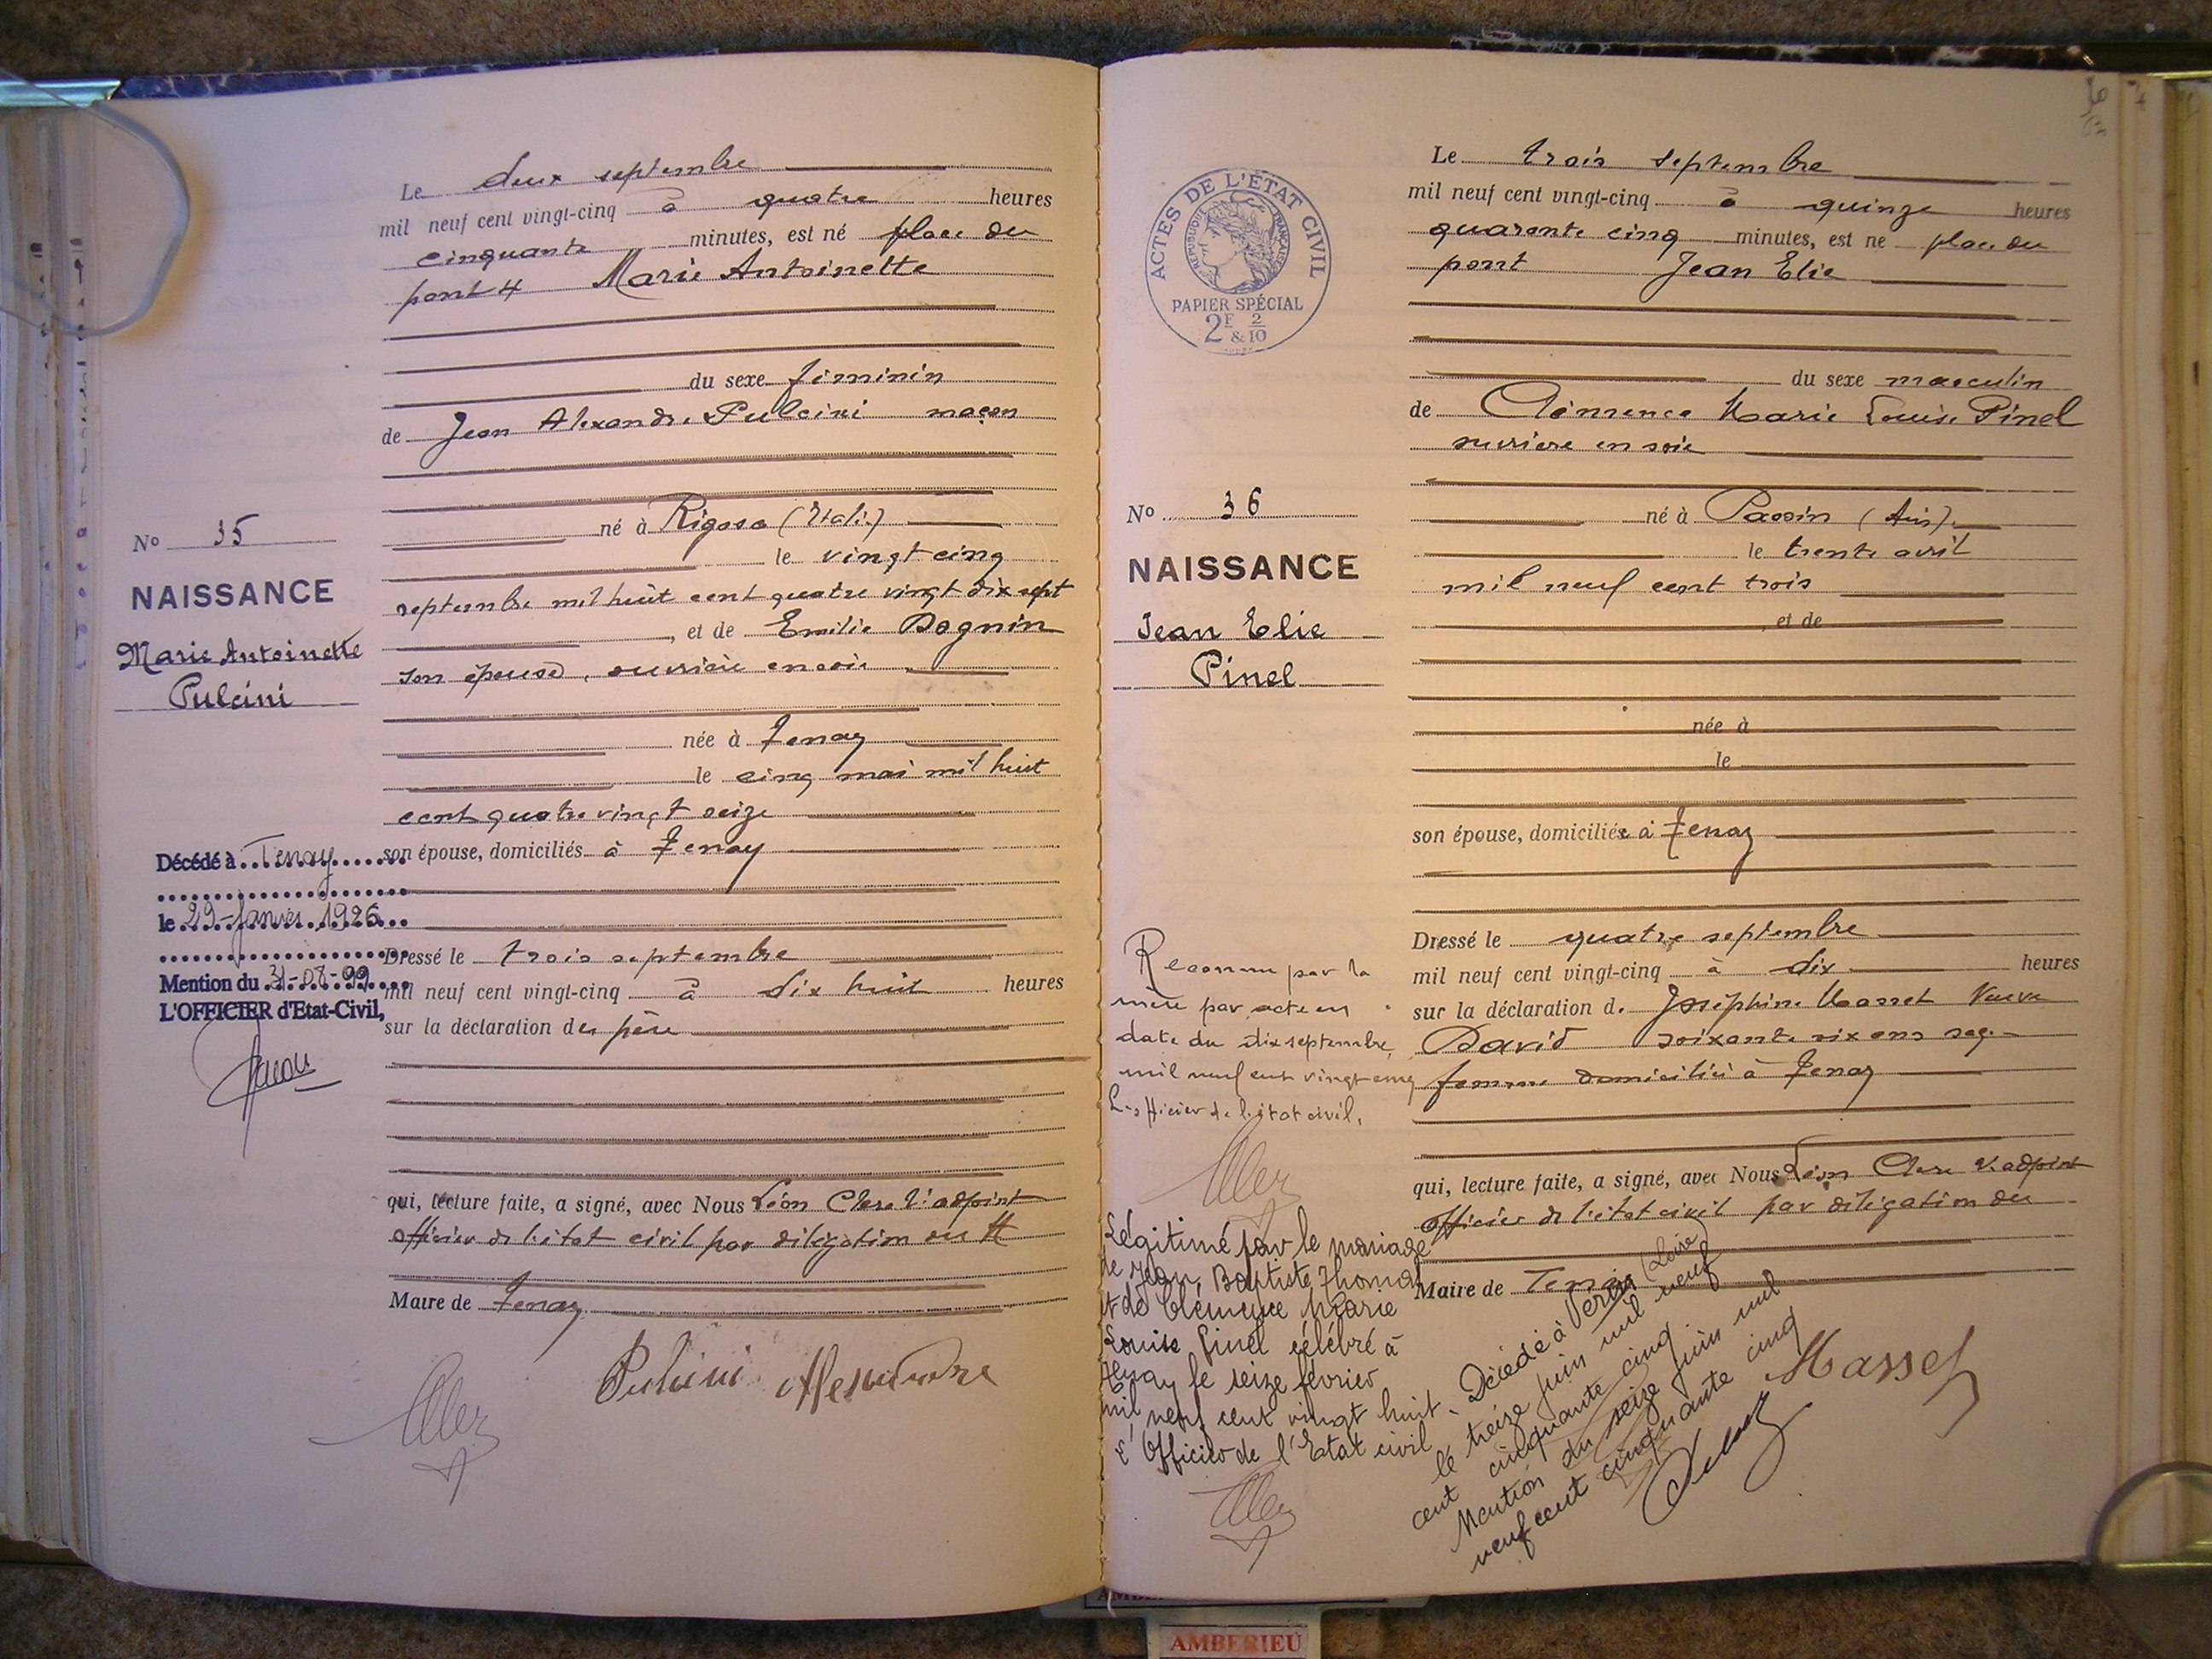 Le deux septembre
mil neuf cent vingt-cinq à quatre heures
cinquante minutes, est né place du
pont 4 Marie Antoinette
du sexe féminin
de Jean Alexandre Pulcini maçon
né à Rigoso (Italie)
le vingt cinq
septembre mil huit cent quatre vingt dix sept
, et de Emilie Dognin
son épouse, ouvrière en soie
née à Tenay
le cinq mai mil huit
cent quatre vingt seize
son épouse, domiciliés à Tenay
Dressé le trois septembre
mil neuf cent vingt-cinq à dix huit heures
sur la déclaration du père
qui, lecture faite, a signé, avec Nous Léon Clerc 1er adjoint
officier de l'état civil par délégation du
Maire de Tenay
Pulcini Alexandre
No 35
NAISSANCE
Marie Antoinette
Pulcini
Décédé à Tenay
le 29 Janvier 1926
Mention du 31-08-99
L'OFFICIER d'Etat-Civil,
ACTES DE L'ÉTAT CIVIL
RÉPUBLIQUE FRANÇAISE
PAPIER SPÉCIAL
2F & 2/10
Le trois septembre
mil neuf cent vingt-cinq à quinze heures
quarante cinq minutes, est né place du
pont Jean Elie
du sexe masculin
de Clémence Marie Louise Pinel
ouvrière en soie
né à Passin (Ain)
le trente avril
mil neuf cent trois
, et de
née à
le
son épouse, domiciliée à Tenay
Dressé le quatre septembre
mil neuf cent vingt-cinq à dix heures
sur la déclaration de Joséphine Masset Veuve
David soixante six ans sage-
femme domiciliée à Tenay
qui, lecture faite, a signé, avec Nous Léon Clerc 1er adjoint
officier de l'état civil par délégation du
Maire de Tenay
Masset
No 36
NAISSANCE
Jean Elie
Pinel
Reconnu par la
mère par acte en
date du dix septembre
mil neuf cent vingt cinq
L'officier de l'état civil,
Légitimé par le mariage
de Jean, Baptiste Thomas
et de Clémence Marie
Louise Pinel célébré à
Tenay le seize février
mil neuf cent vingt huit.
L'Officier de l'Etat civil
Décédé à (Loire)
le treize juin mil neuf
cent cinquante cinq
Mention du seize juin mil
neuf cent cinquante cinq
AMBERIEU